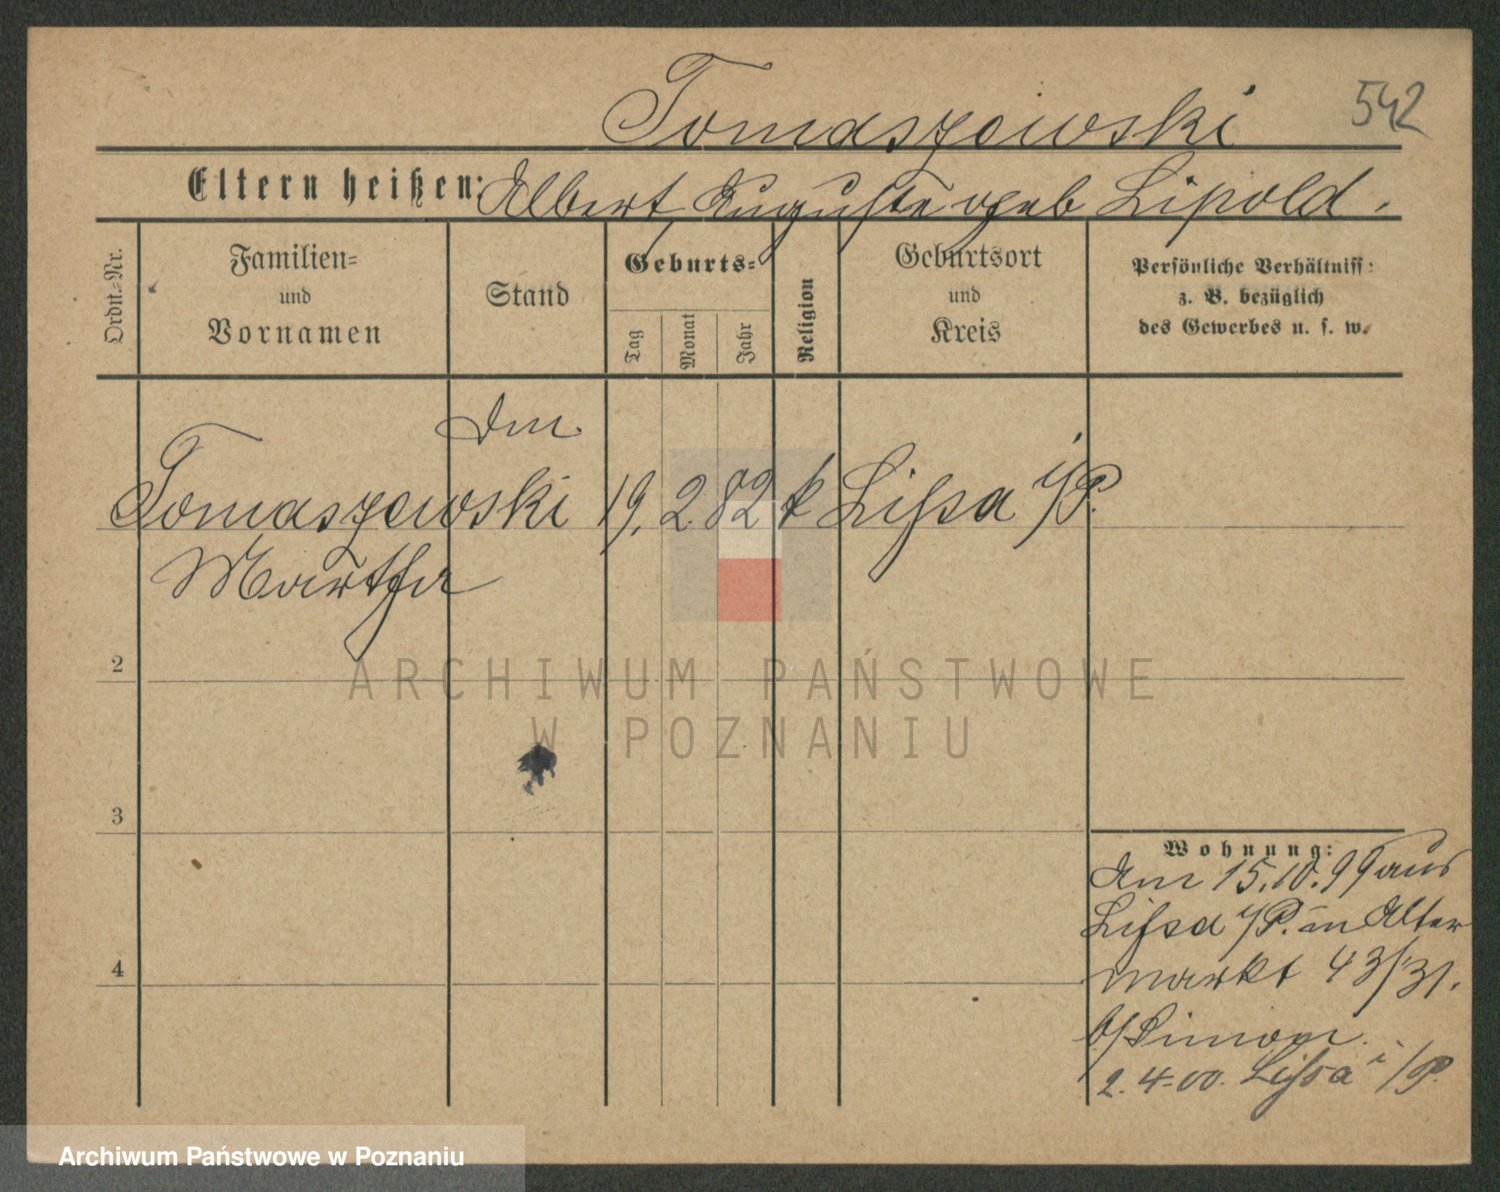 Tomaszewski 542
Eltern heißen: Albert Auguste geb Lipold.
Ordn.-Nr.
Familien-
und
Vornamen
Stand
Geburts-
Tag
Monat
Jahr
Religion
Geburtsort
und
Kreis
Persönliche Verhältniss:
z. B. bezüglich
des Gewerbes u. s. w.
Tomaszewski 19. 2 82 k Lissa i/P.
Martha
2
ARCHIWUM PAŃSTWOWE
W POZNANIU
3
4
Wohnung:
Am 15.10.99 aus
Lissa i/P. in Alter
markt 43/31.
b/Simon.
2.4.00. Lissa i/P.
Archiwum Państwowe w Poznaniu